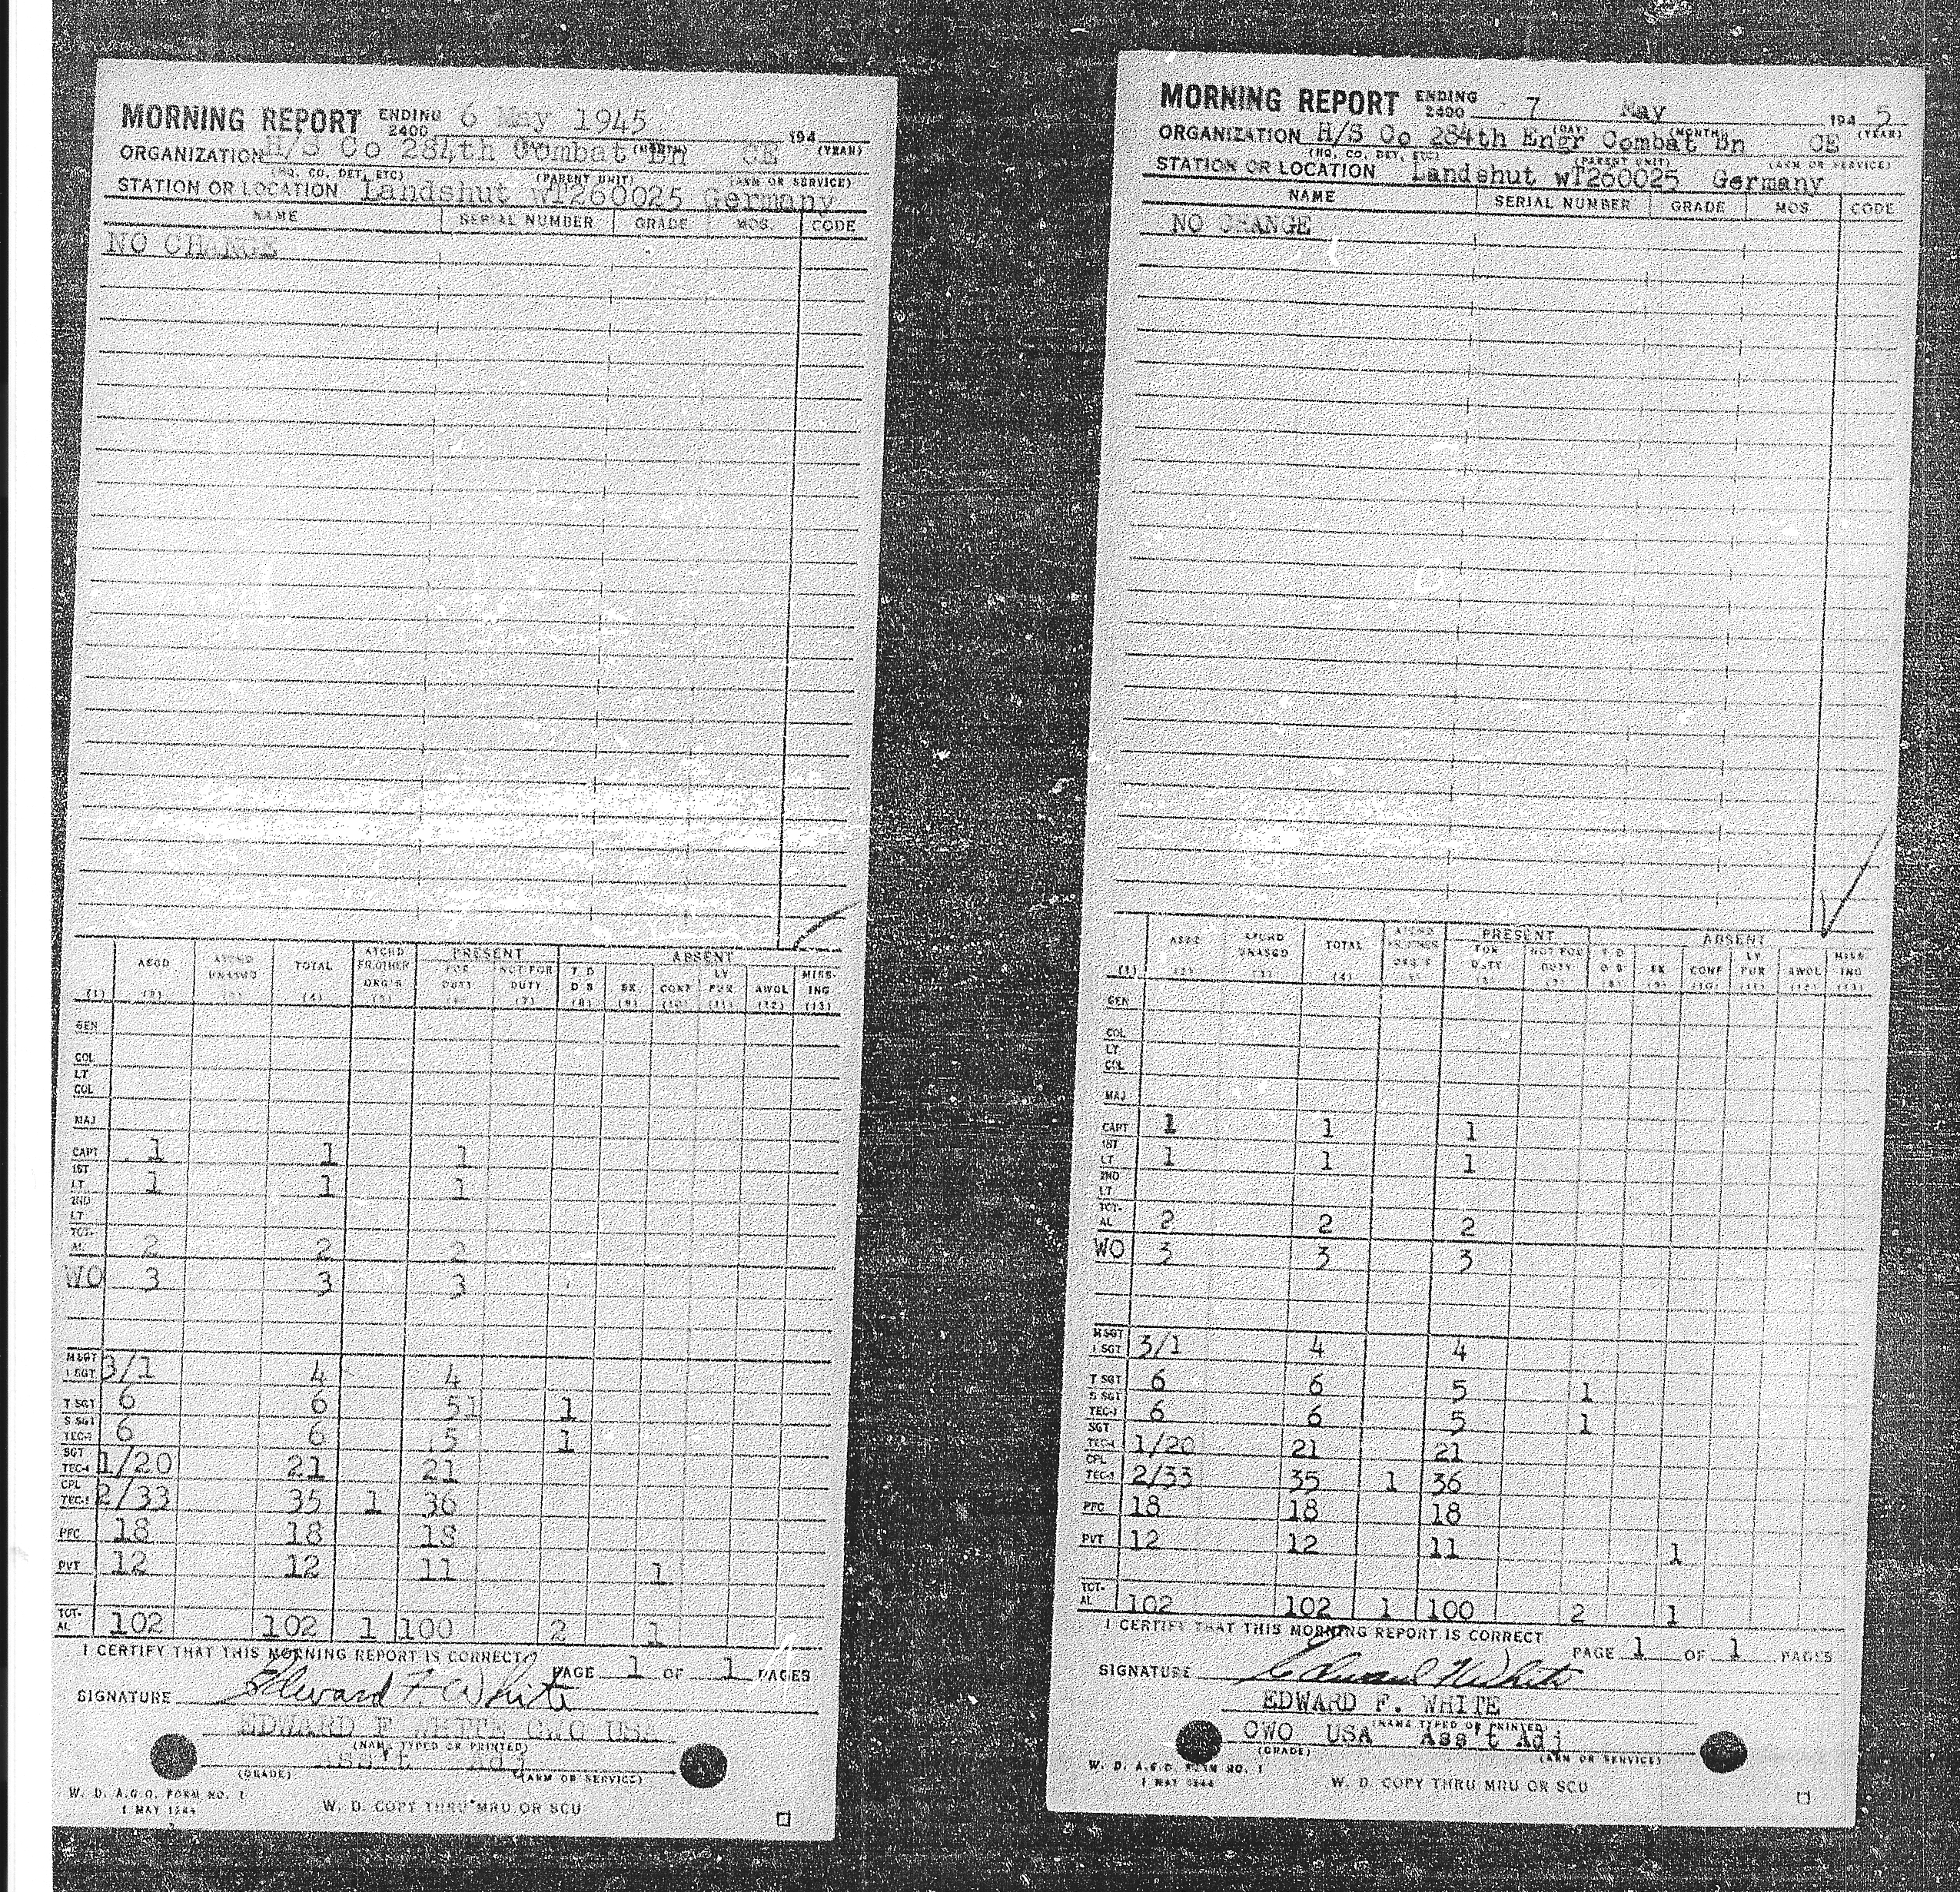 MORNING REPORT ENDING 2400 6 May 1945 194
(MONTH) (YEAR)
ORGANIZATION H/S Co 284th Combat Bn CE
(HQ, CO, DET, ETC) (PARENT UNIT) (ARM OR SERVICE)
STATION OR LOCATION Landshut wT260025 Germany
NAME SERIAL NUMBER GRADE MOS. CODE
NO CHANGE
ASGD ATCHD UNASGD TOTAL ATCHD FR.OTHER ORG'S PRESENT FOR DUTY NOT FOR DUTY ABSENT T D D S SK CONF LV FUR AWOL MISS-ING
(1) (2) (3) (4) (5) (6) (7) (8) (9) (10) (11) (12) (13)
GEN
COL
LT COL
MAJ
CAPT 1 1 1
1ST LT 1 1 1
2ND LT
TOT-AL 2 2 2
WO 3 3 3
M SGT 1 SGT 3/1 4 4
T SGT 6 6 51 1
S SGT TEC-3 6 6 5 1
SGT TEC-4 1/20 21 21
CPL TEC-5 2/33 35 1 36
PFC 18 18 18
PVT 12 12 11 1
TOT-AL 102 102 1 100 2 1
I CERTIFY THAT THIS MORNING REPORT IS CORRECT
PAGE 1 OF 1 PAGES
SIGNATURE Edward F. White
EDWARD F WHITE CWO USA
(NAME TYPED OR PRINTED)
Ass't Adj
(GRADE) (ARM OR SERVICE)
W. D. A.G.O. FORM NO. 1
1 MAY 1944
W. D. COPY THRU MRU OR SCU
MORNING REPORT ENDING 2400 7 May 194 5
(DAY) (MONTH) (YEAR)
ORGANIZATION H/S Co 284th Engr Combat Bn CE
(HQ, CO, DET, ETC) (PARENT UNIT) (ARM OR SERVICE)
STATION OR LOCATION Landshut wT260025 Germany
NAME SERIAL NUMBER GRADE MOS CODE
NO CHANGE
ASGD ATCHD UNASGD TOTAL ATCHD FR.OTHER ORG'S PRESENT FOR DUTY NOT FOR DUTY ABSENT T D D S SK CONF LV FUR AWOL MISS-ING
(1) (2) (3) (4) (5) (6) (7) (8) (9) (10) (11) (12) (13)
GEN
COL
LT COL
MAJ
CAPT 1 1 1
1ST LT 1 1 1
2ND LT
TOT-AL 2 2 2
WO 3 3 3
M SGT 1 SGT 3/1 4 4
T SGT 6 6 5 1
S SGT TEC-3 6 6 5 1
SGT TEC-4 1/20 21 21
CPL TEC-5 2/33 35 1 36
PFC 18 18 18
PVT 12 12 11 1
TOT-AL 102 102 1 100 2 1
I CERTIFY THAT THIS MORNING REPORT IS CORRECT
PAGE 1 OF 1 PAGES
SIGNATURE Edward F White
EDWARD F. WHITE
(NAME TYPED OR PRINTED)
CWO USA Ass't Adj
(GRADE) (ARM OR SERVICE)
W. D. A.G.O. FORM NO. 1
1 MAY 1944
W. D. COPY THRU MRU OR SCU